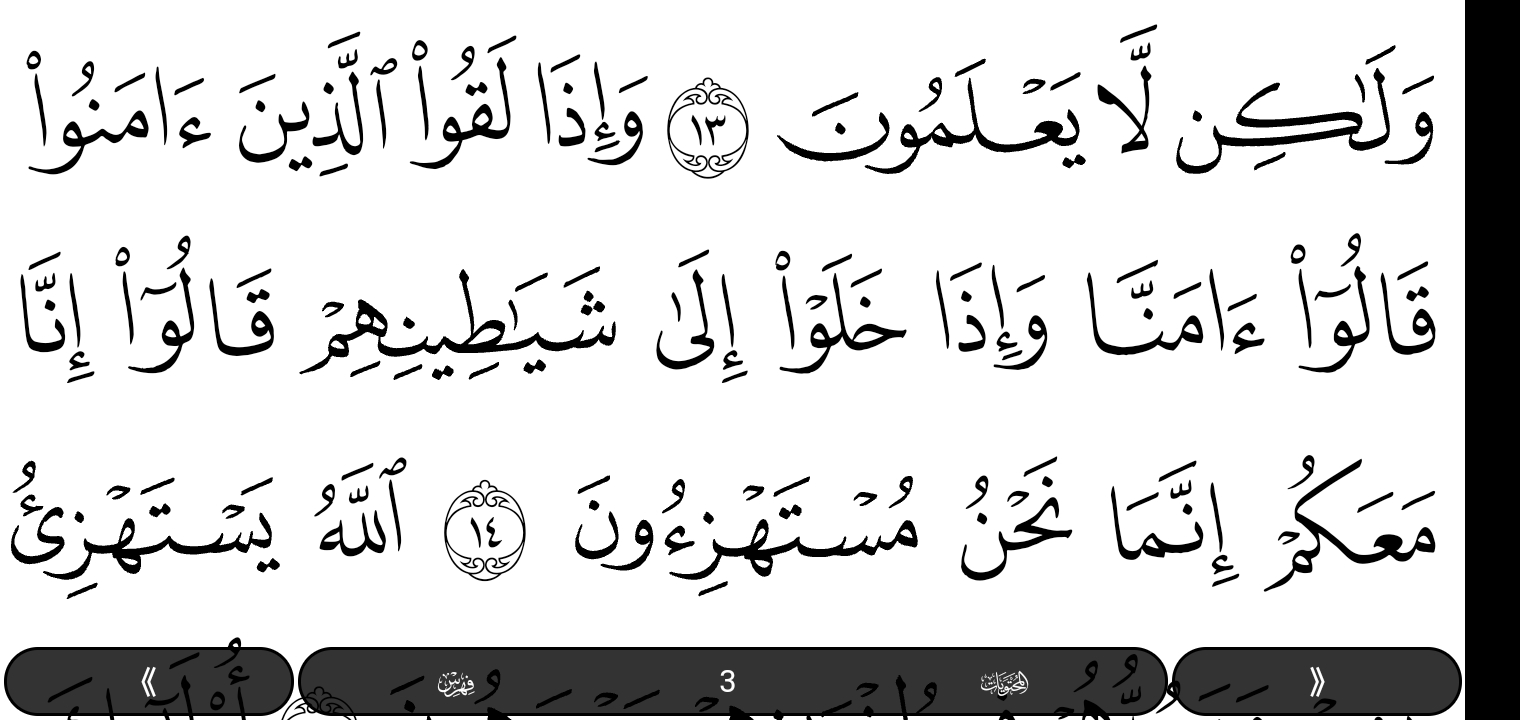 وَلَٰكِن لَّا يَعۡلَمُونَ ١٣ وَإِذَا لَقُواْ ٱلَّذِينَ ءَامَنُواْ
قَالُوٓاْ ءَامَنَّا وَإِذَا خَلَوۡاْ إِلَىٰ شَيَٰطِينِهِمۡ قَالُوٓاْ إِنَّا
مَعَكُمۡ إِنَّمَا نَحۡنُ مُسۡتَهۡزِءُونَ ١٤ ٱللَّهُ يَسۡتَهۡزِئُ
《 فهرس 3 المحتويات 》